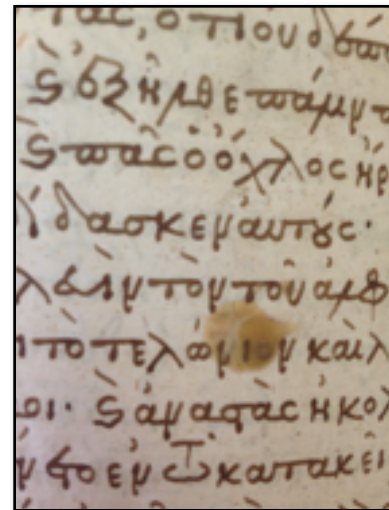 τας, ὅτι οὐδέ
ϛ ἐξῆλθε πάλιν
ϛ πᾶς ὁ ὄχλος ἠρ
ίδασκεν αὐτούς·
λευὶν τὸν τοῦ ἀλφ
ι τὸ τελώνιον καὶ λ
οι· ϛ ἀναστὰς ἠκολ
νετο ἐν τῶ κατακει